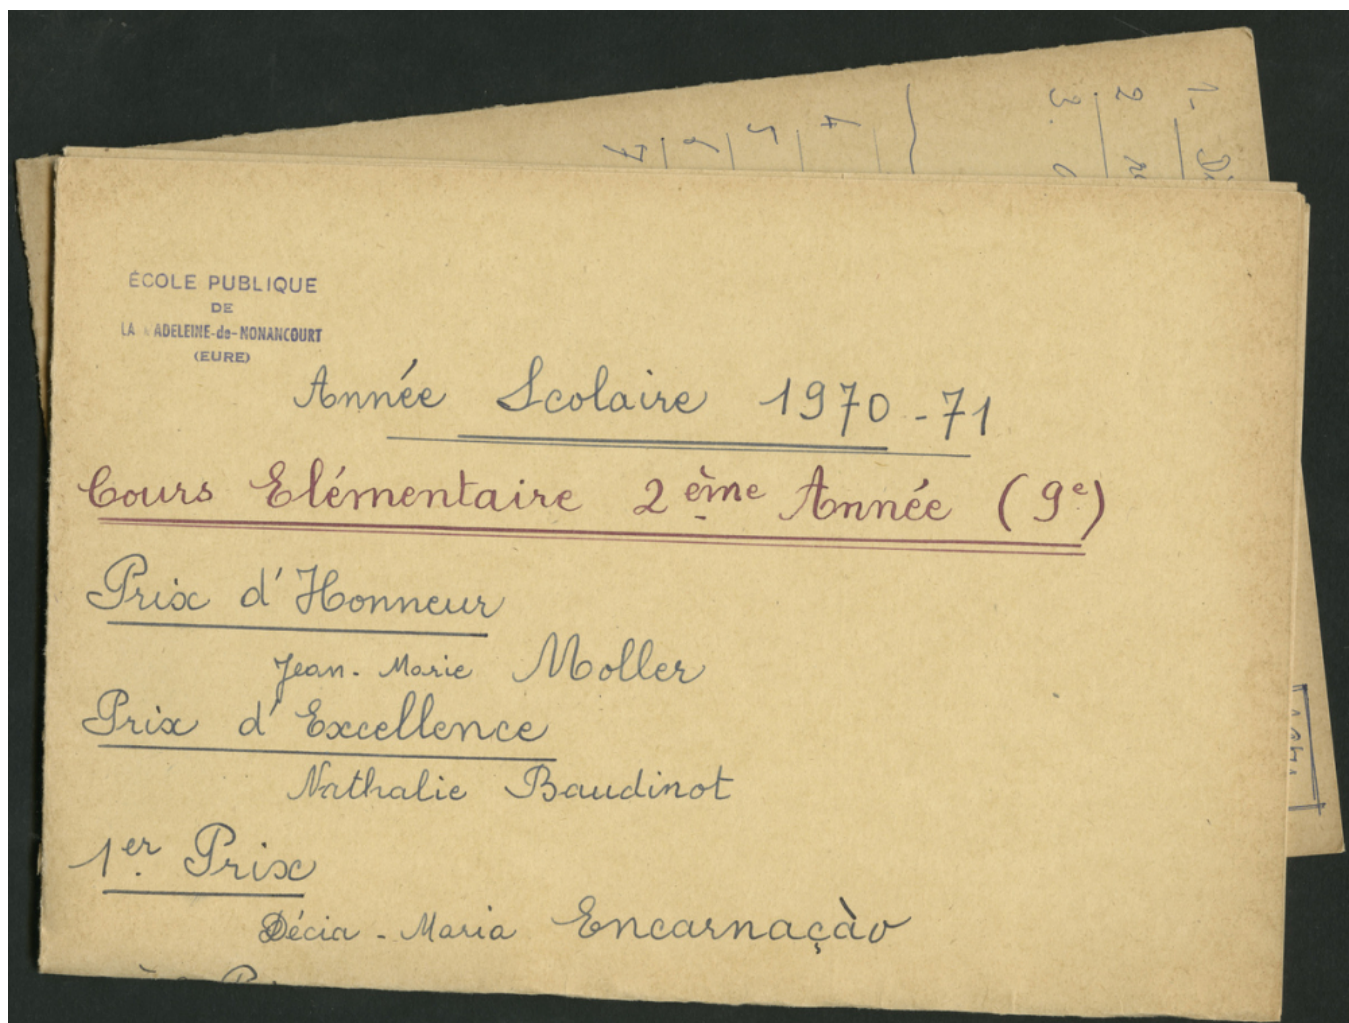 ÉCOLE PUBLIQUE
DE
LA ADELEINE-de-NONANCOURT
(EURE)
Année Scolaire 1970-71
Cours Elémentaire 2ème Année (9e)
Prix d'Honneur
Jean-Marie Moller
Prix d'Excellence
Nathalie Baudinot
1er Prix
Décia-Maria Encarnaçào
1-
2
3.
4
5
6
7